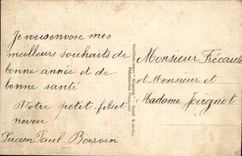 Je vous envoie mes
meilleurs souhaits de
bonne année et de
bonne santé
Votre petit fils et
neveu
Lucien Paul Boisvin
Monsieur
et Monsieur et
Madame Jovignot